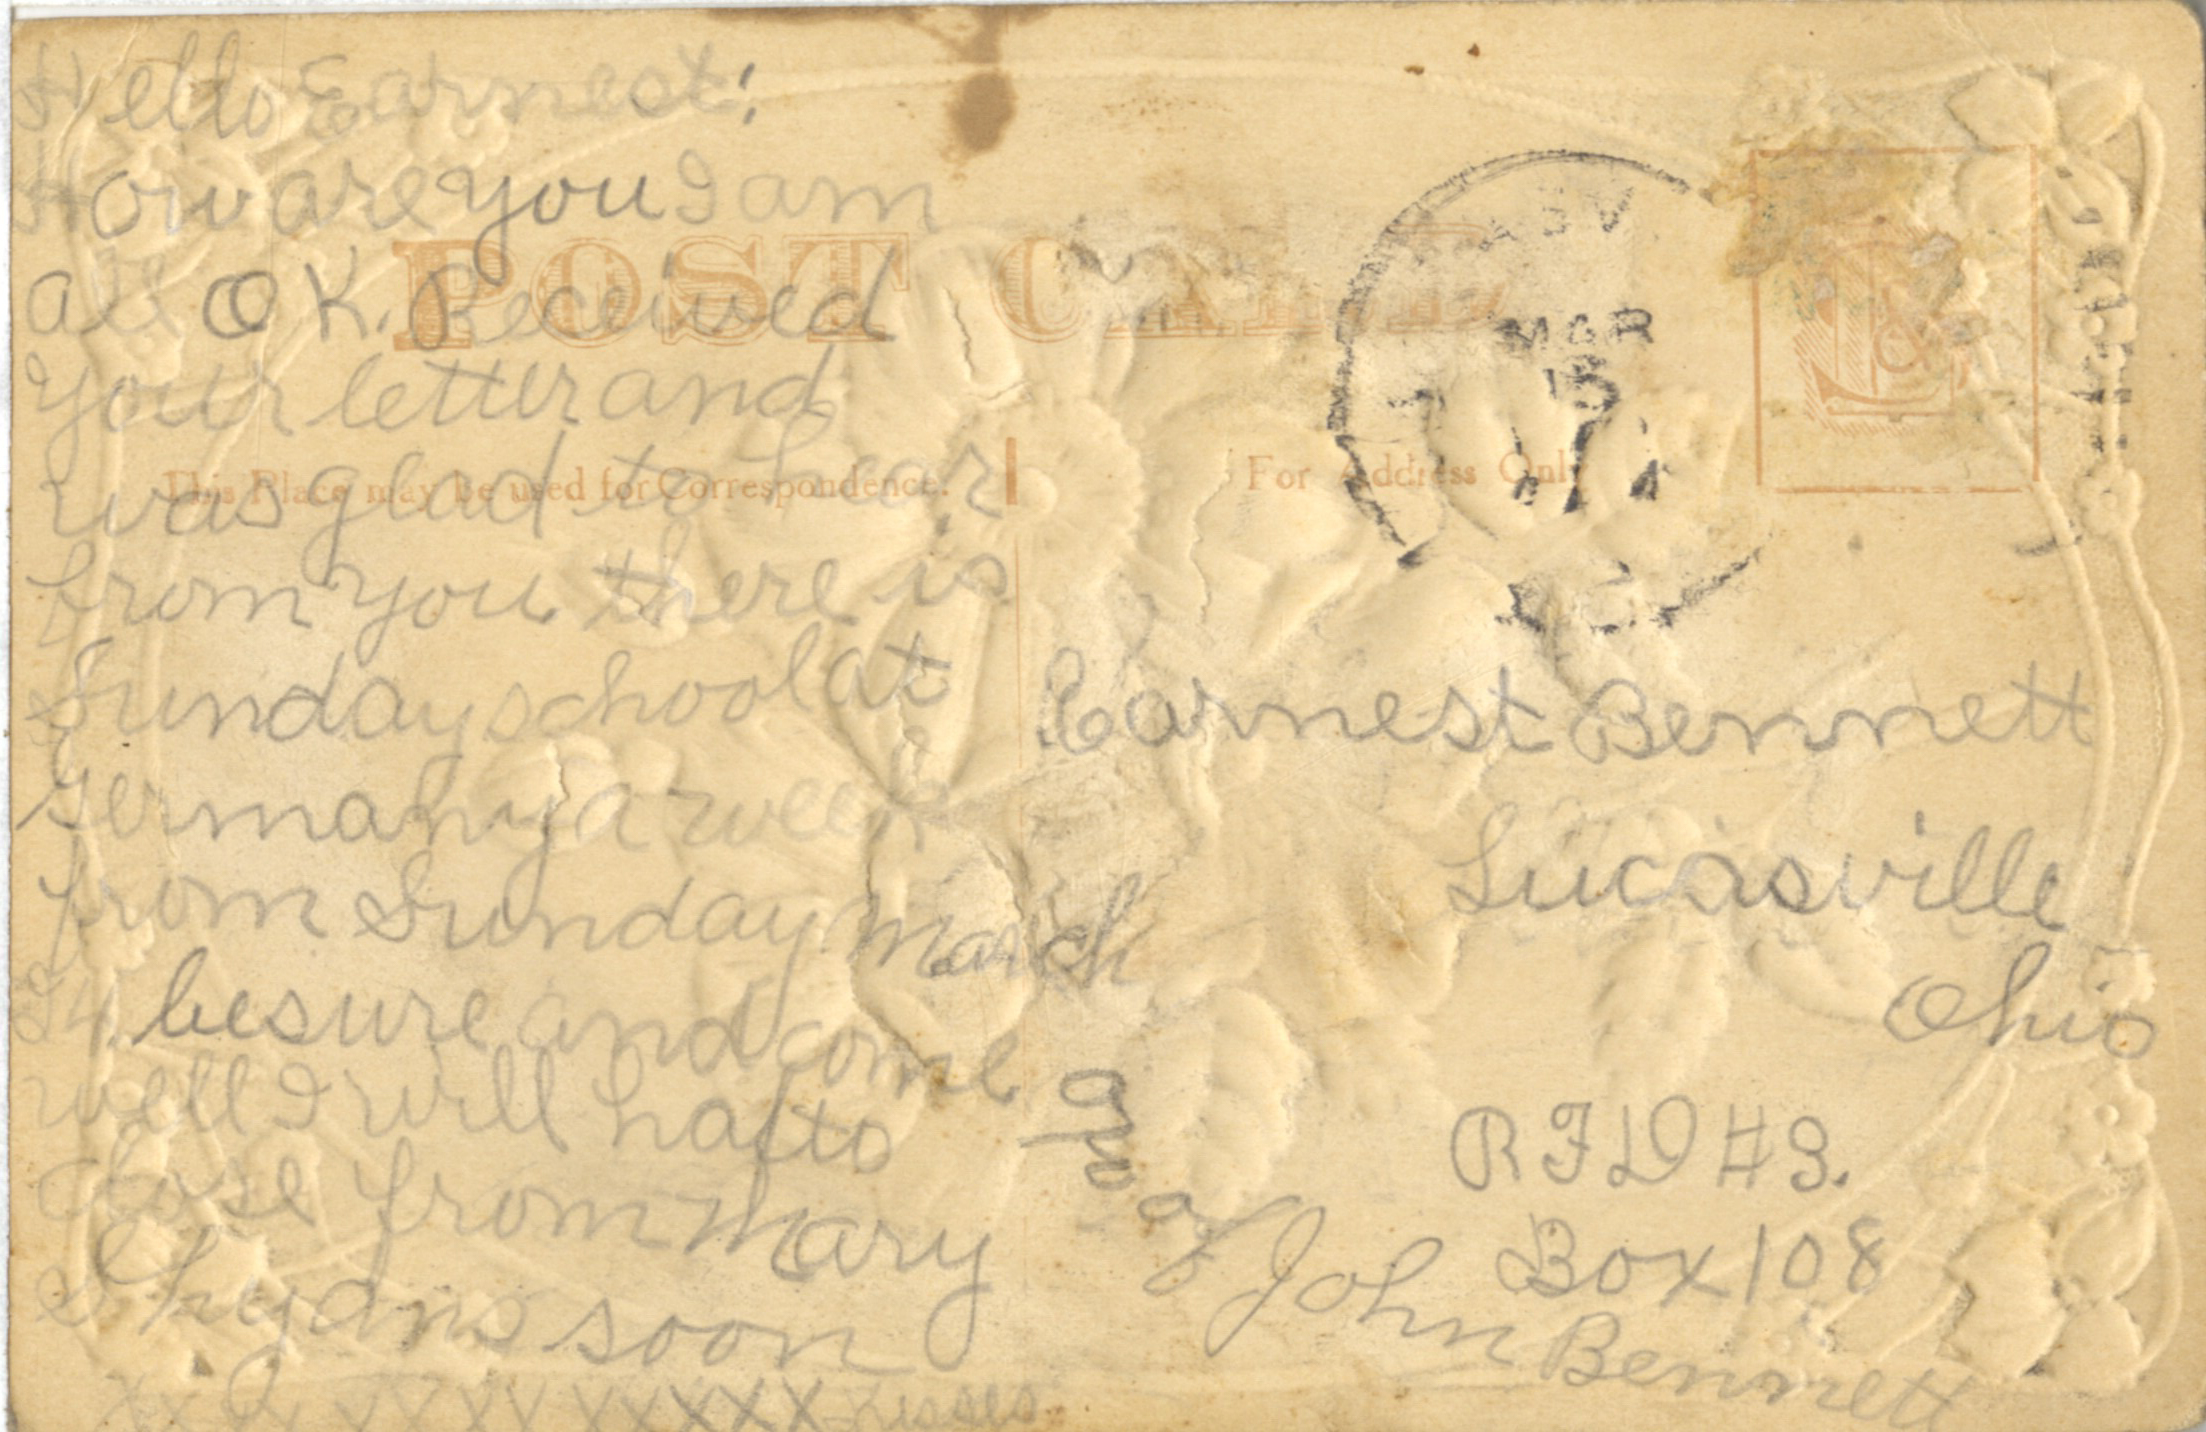 Hello Earnest:
How are you I am
all O K. Received
your letter and
was glad to hear
from you there is
Sunday school at
germany a week
from Sunday march
24 be sure and come
well I will hafto
close from Mary
soon
xx xx xxxx xxxxx Kisses
POST CARD
This Place may be used for Correspondence.
For Address Only
MAR
15
Earnest Bennett
Lucasville
Ohio
R F D # 3.
Box 108
John Bennett